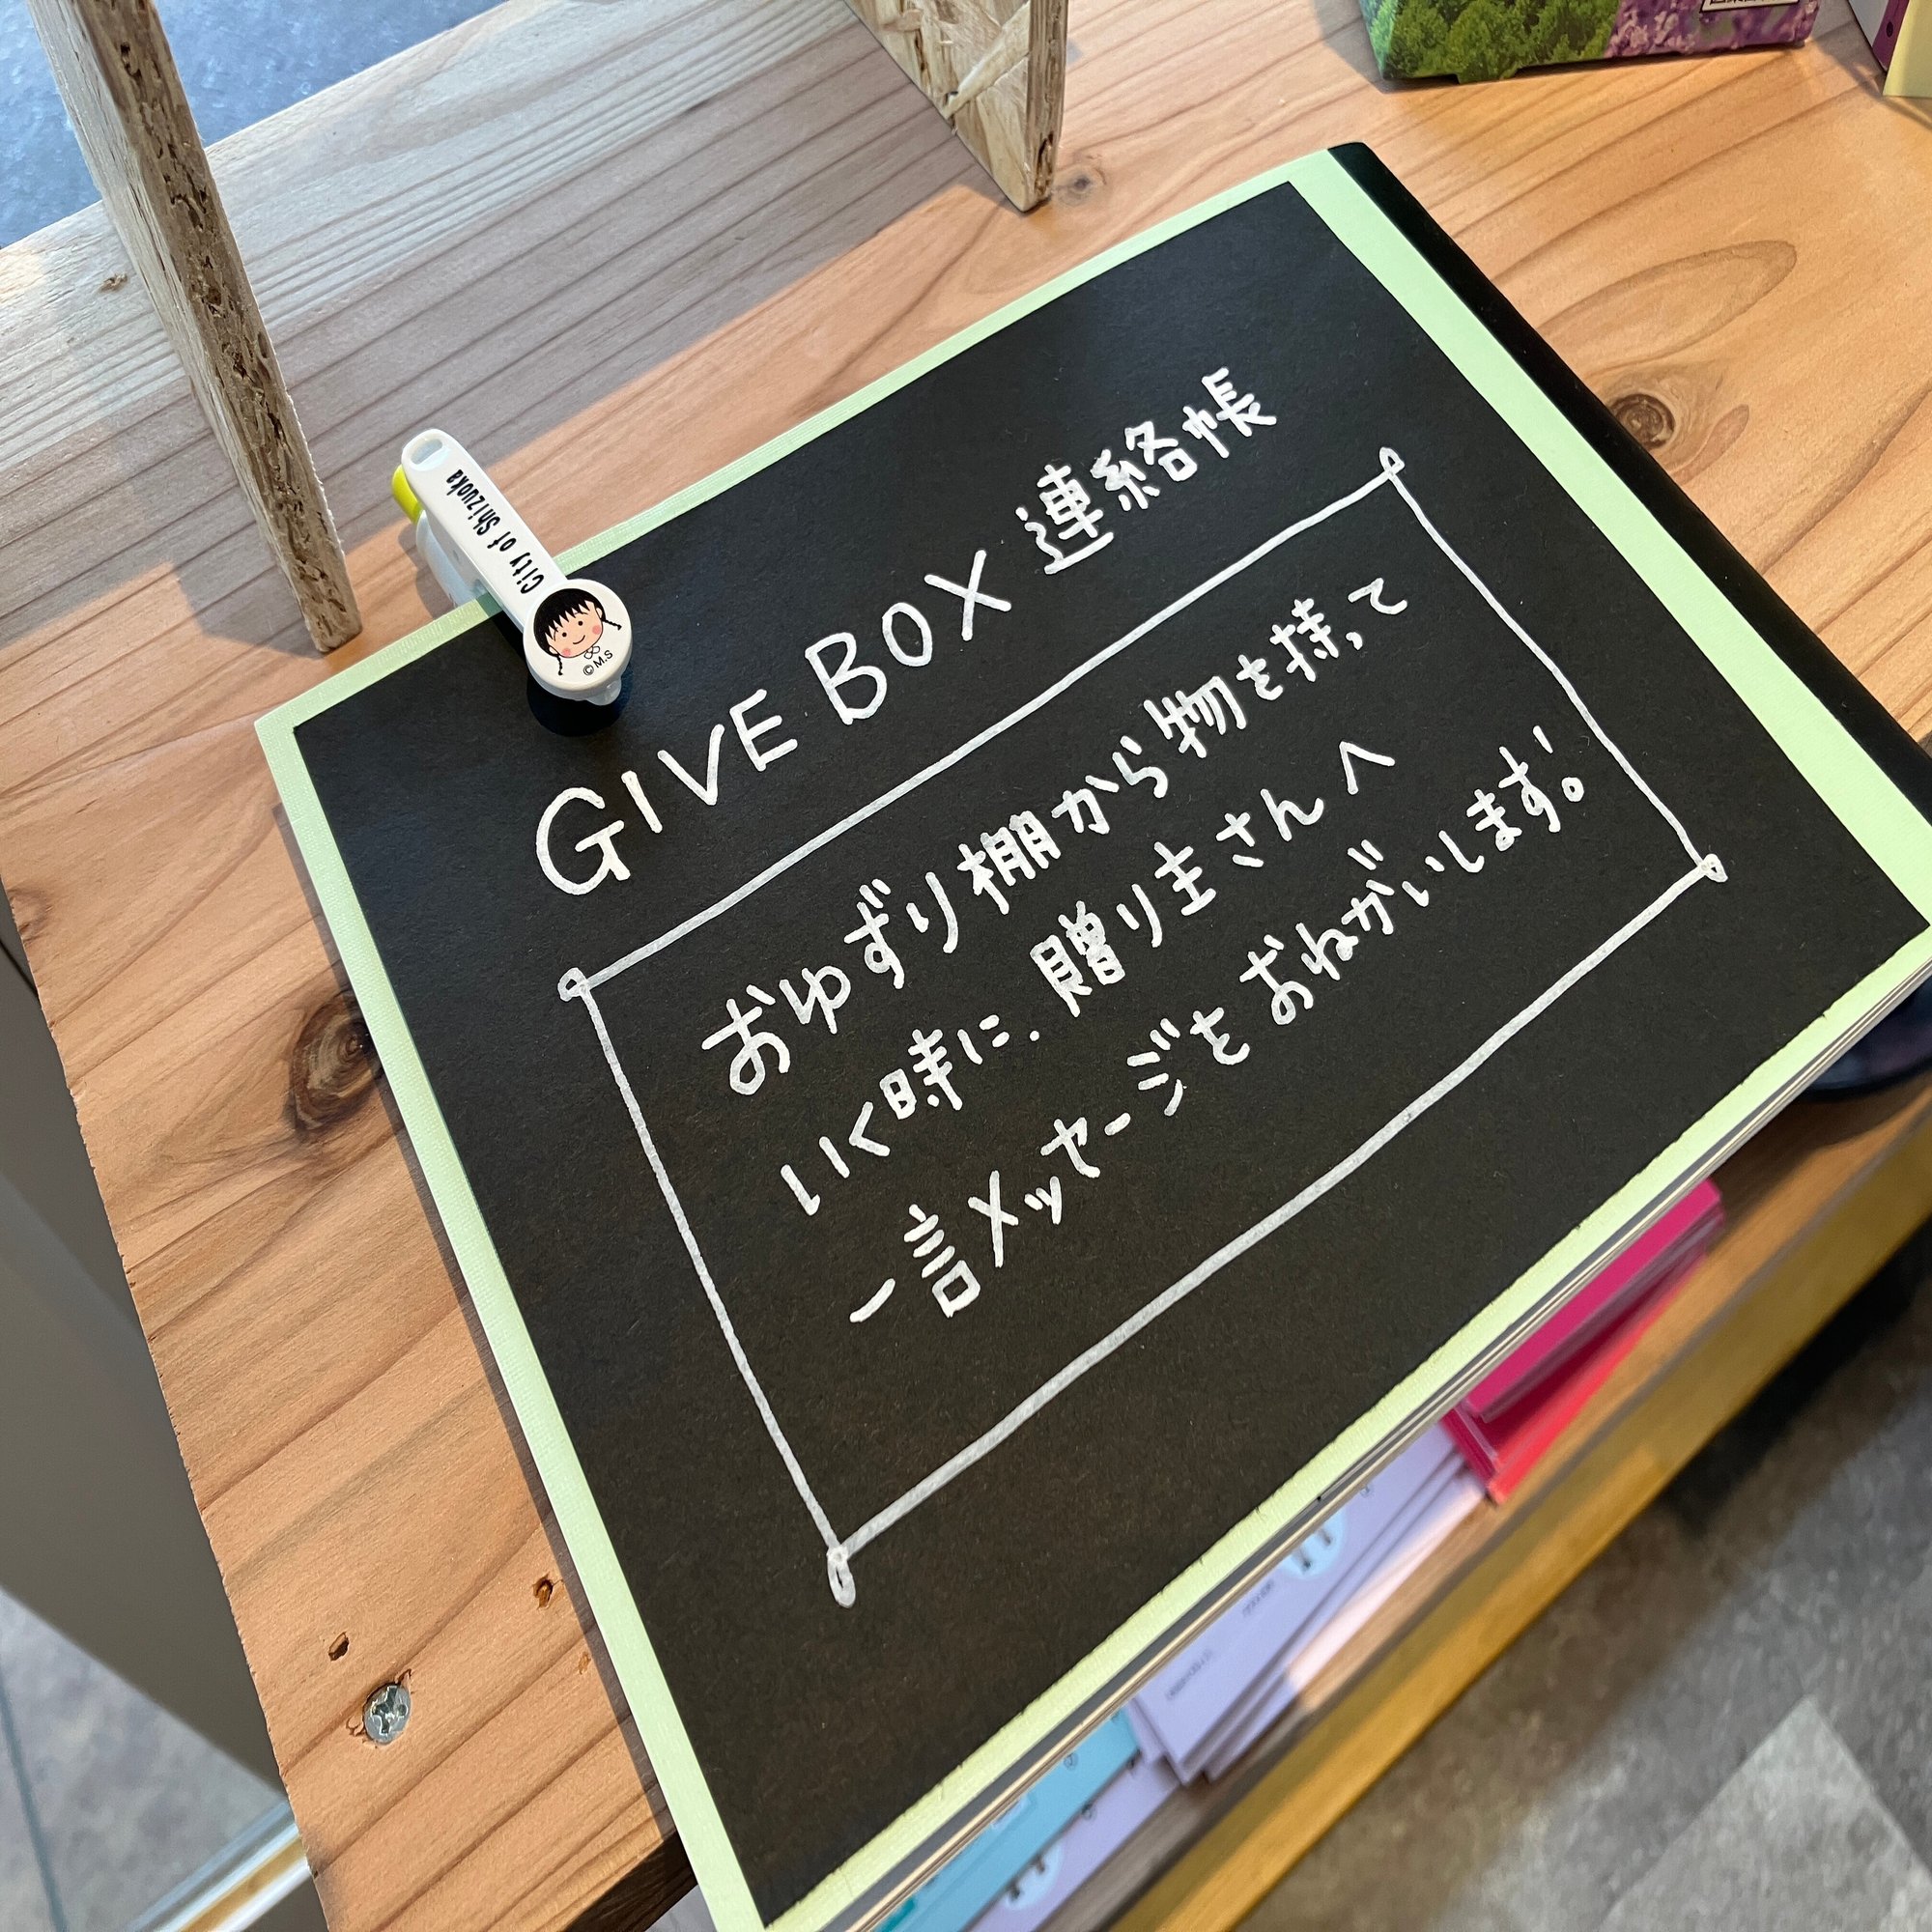 City of Shizuoka
©M.S
GIVE BOX 連絡帳
おゆずり棚から物を持って
いく時に、贈り主さんへ
一言メッセージをおねがいします!。